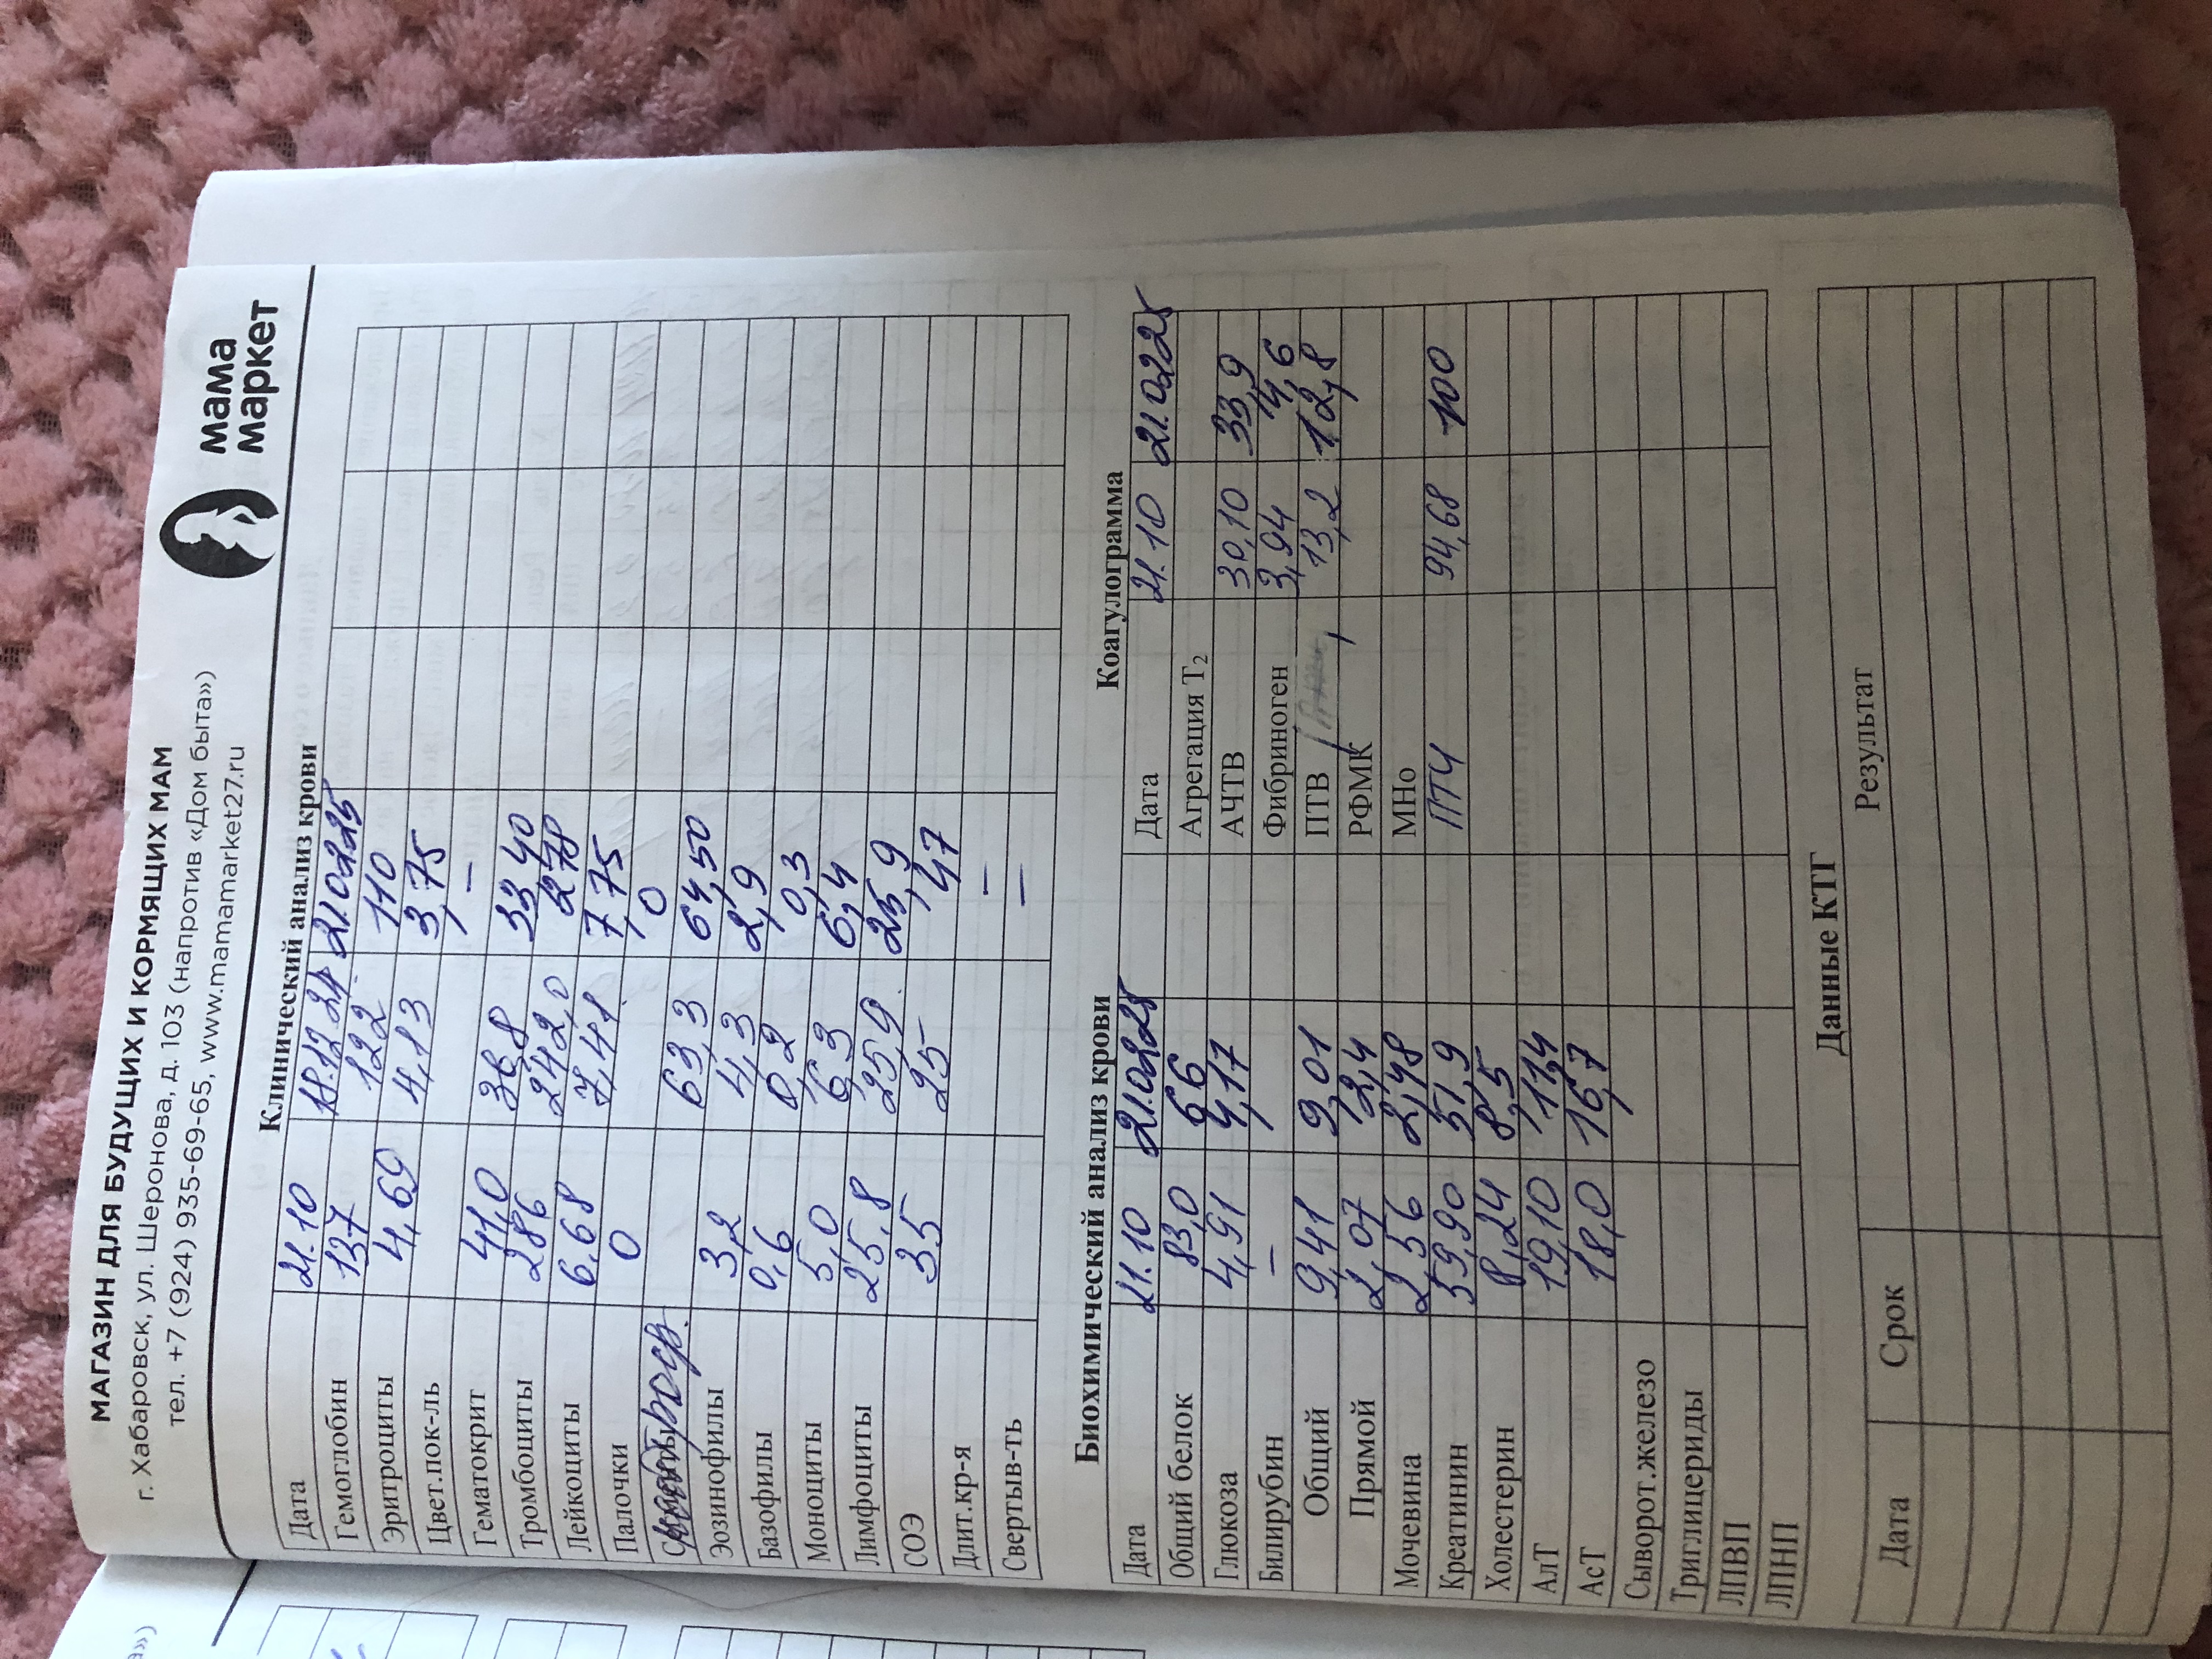 МАГАЗИН ДЛЯ БУДУЩИХ И КОРМЯЩИХ МАМ
г. Хабаровск, ул. Шеронова, д. 103 (напротив «Дом быта»)
тел. +7 (924) 935-69-65, www.mamamarket27.ru
мама
маркет
Клинический анализ крови
Дата 21.10 18.12.24 21.02.25
Гемоглобин 137 122 110
Эритроциты 4,69 4,13 3,75
Цвет.пок-ль –
Гематокрит 41,0 36,8 33,40
Тромбоциты 286 242,0 278
Лейкоциты 6,68 7,41 7,75
Палочки 0 0
63,3 64,50
Эозинофилы 3,2 4,3 2,9
Базофилы 0,6 0,2 0,3
Моноциты 5,0 6,3 6,4
Лимфоциты 25,8 25,9 25,9
СОЭ 35 25 47
Длит.кр-я –
Свертыв-ть –
Биохимический анализ крови
Дата 21.10 21.02.25
Общий белок 83,0 66
Глюкоза 4,91 4,17
Билирубин –
Общий 9,41 9,01
Прямой 2,07 2,4
Мочевина 2,56 2,48
Креатинин 59,90 51,9
Холестерин 8,24 8,5
АлТ 19,10 11,4
АсТ 18,0 16,7
Сыворот.железо
Триглицериды
ЛПВП
ЛПНП
Коагулограмма
Дата 21.10 21.02.25
Агрегация Т2
АЧТВ 30,10 33,9
Фибриноген 3,94 4,6
ПТВ 13,2 12,8
РФМК
МНо
ПТИ 94,68 100
Данные КТГ
Дата Срок Результат